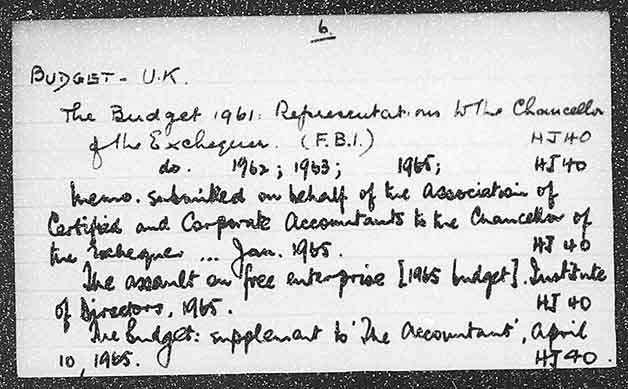 6.
BUDGET - U.K.
The Budget 1961: Representations to the Chancellor
of the Exchequer. (F.B.I.) HJ40
do. 1962; 1963; 1965; HJ40
Memo. submitted on behalf of the Association of
Certified and Corporate Accountants to the Chancellor of
the Exchequer ... Jan. 1965. HJ 40
The assault on free enterprise [1965 budget]. Institute
of Directors, 1965. HJ 40
The Budget: supplement to 'The Accountant', April
10, 1965. HJ40.